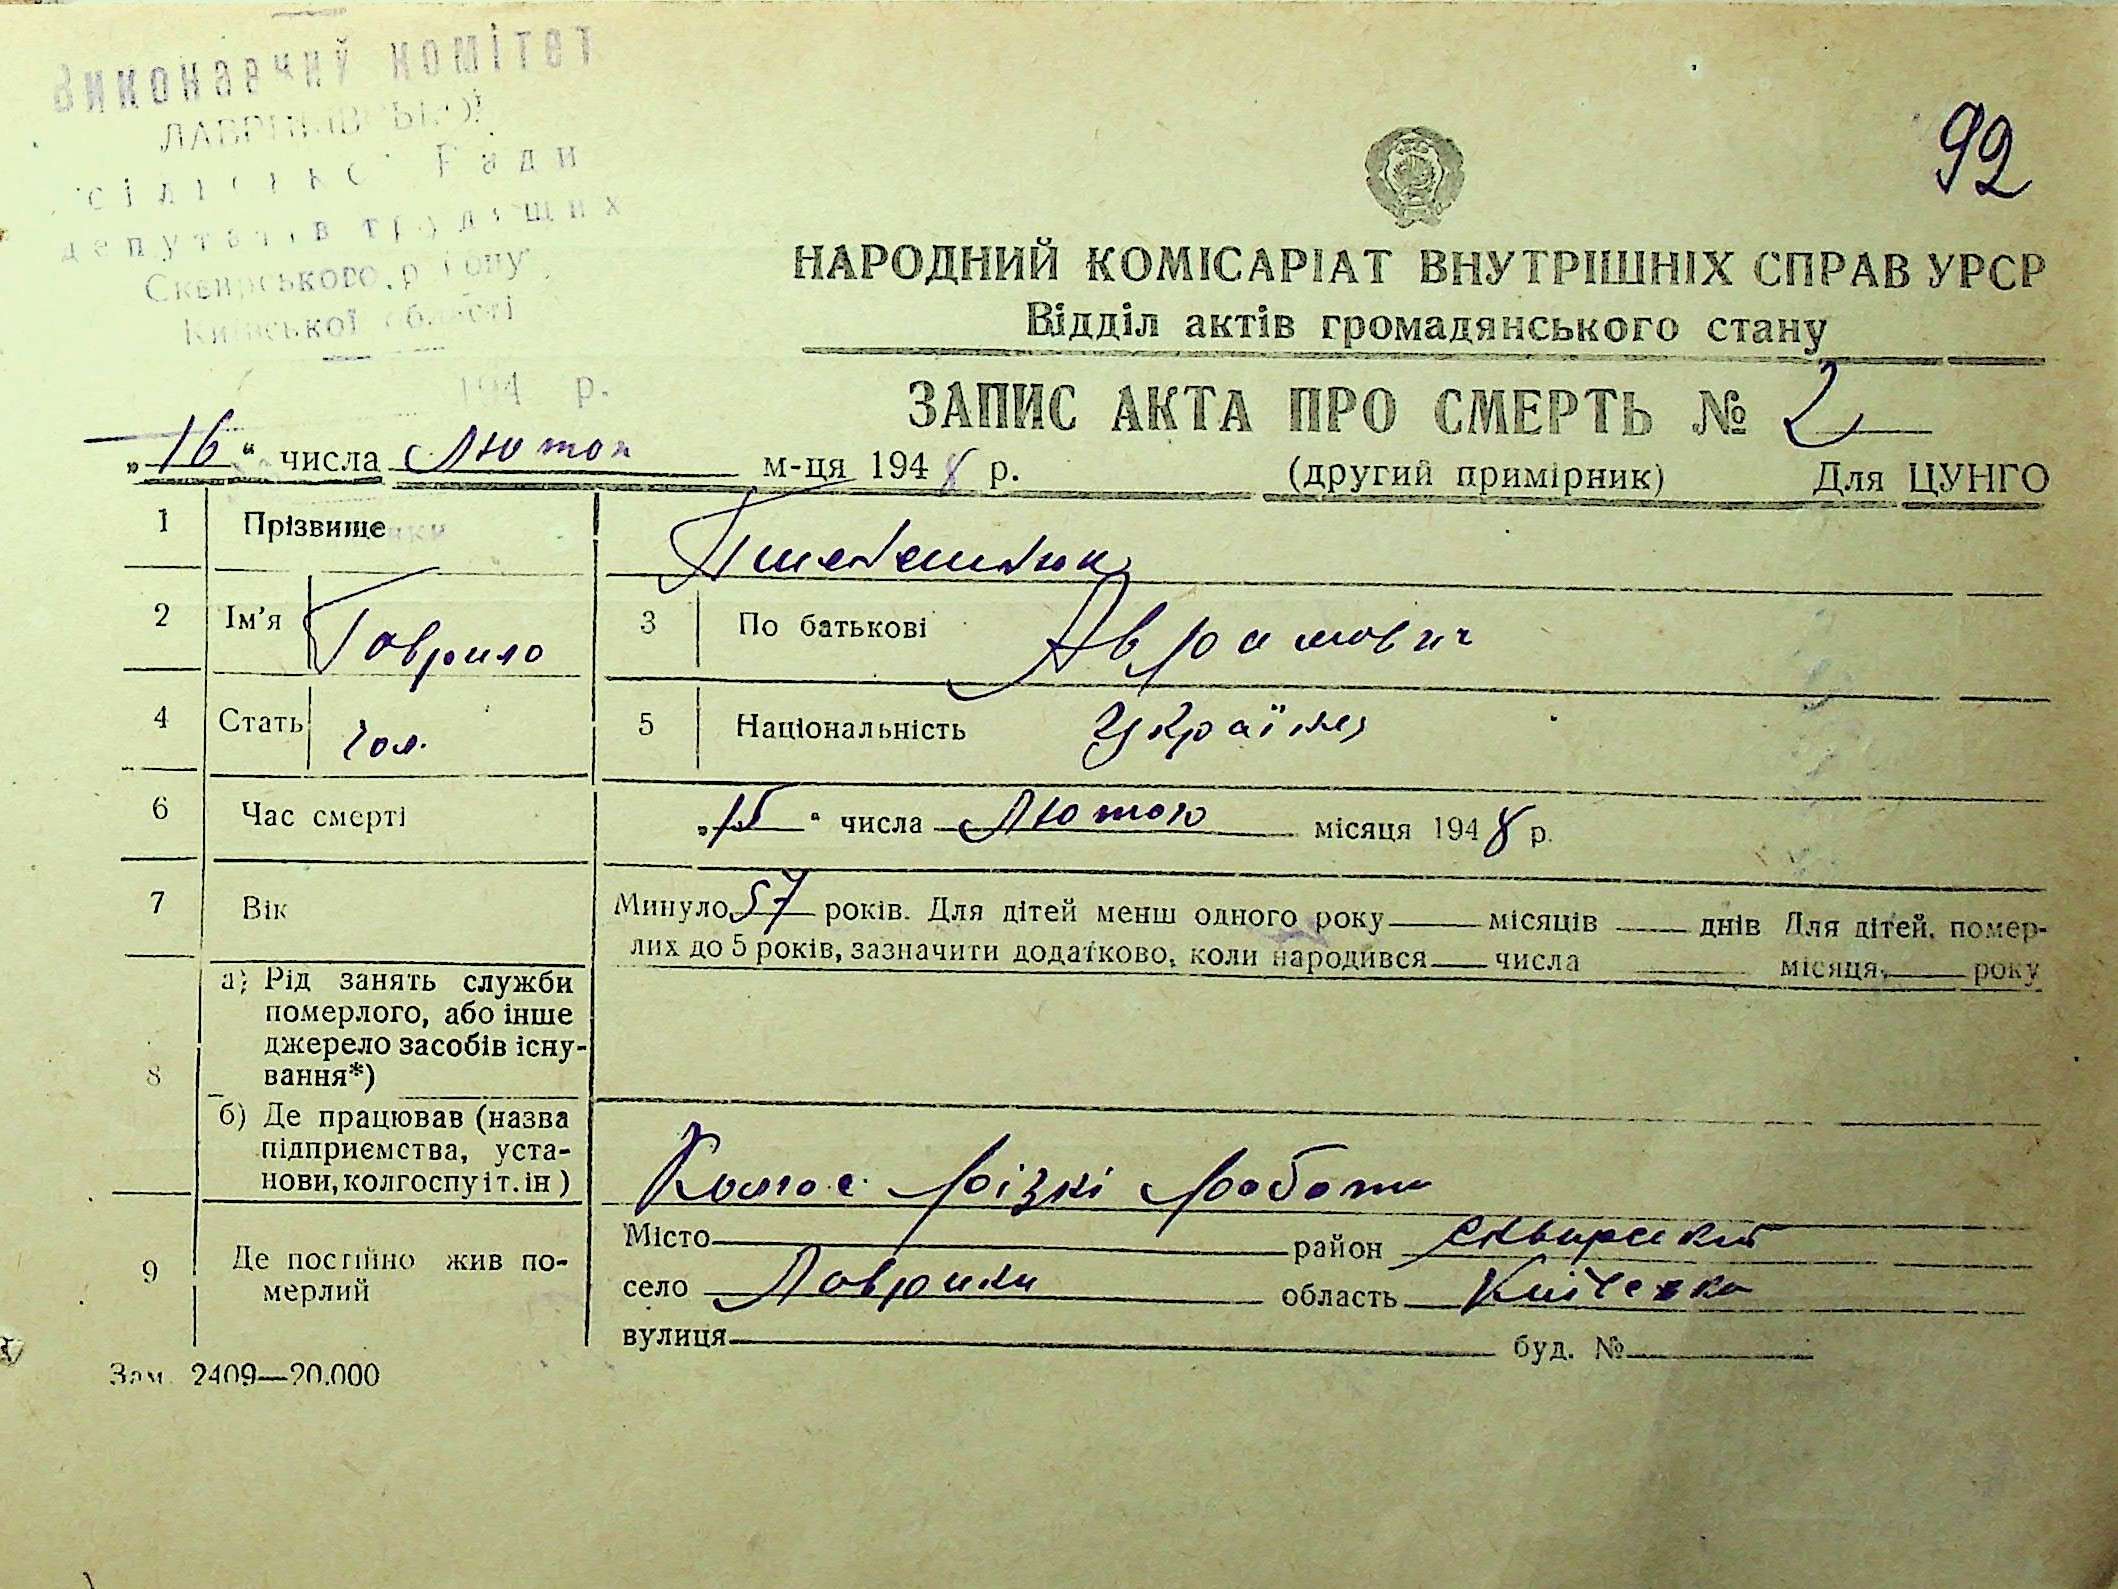 Виконавчий комітет
сільської Ради
депутатів трудящих
Сквирського району
Київської області
194 р.
92
НАРОДНИЙ КОМІСАРІАТ ВНУТРІШНІХ СПРАВ УРСР
Відділ актів громадянського стану
ЗАПИС АКТА ПРО СМЕРТЬ № 2
„16“ числа Лютого м-ця 1948 р. (другий примірник) Для ЦУНГО
1 Прізвище
2 Ім'я Гаврило 3 По батькові Аврамович
4 Стать чол. 5 Національність Україн
6 Час смерті „15“ числа Лютого місяця 1948 р.
7 Вік Минуло 57 років. Для дітей менш одного року місяців днів Для дітей, помер-
лих до 5 років, зазначити додатково, коли народився числа місяця, року
8 а) Рід занять служби
померлого, або інше
джерело засобів існу-
вання*)
б) Де працював (назва
підприємства, уста-
нови, колгоспу і т. ін) Колгос. різкі роботи
9 Де постійно жив по-
мерлий
Місто район Сквирський
село Лаврики область Київська
вулиця буд. №
Зам. 2409—20.000